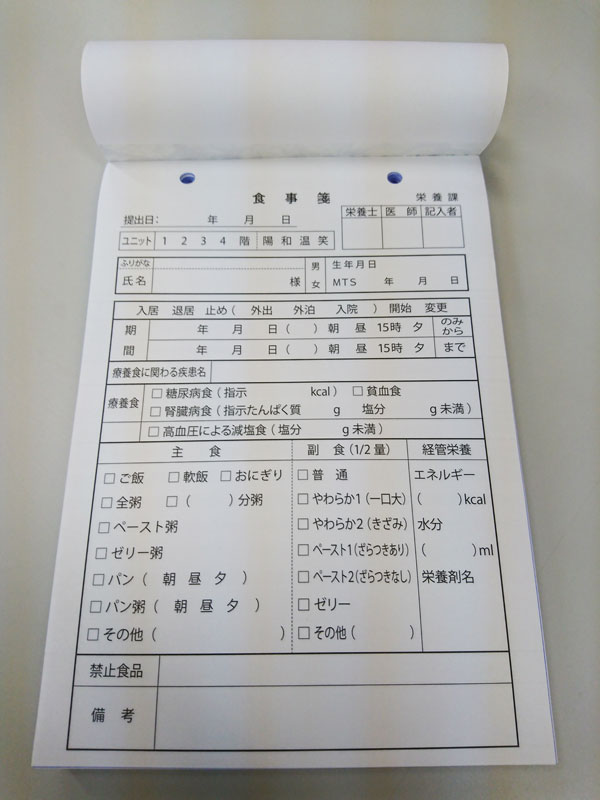 食事箋
栄養課
提出日： 年 月 日
栄養士 医師 記入者
ユニット 1 2 3 4 階 陽 和 温 笑
ふりがな
氏名 様
男
女
生年月日
MTS 年 月 日
入居 退居 止め（ 外出 外泊 入院 ） 開始 変更
期間
年 月 日（ ） 朝 昼 15時 夕 のみ から
年 月 日（ ） 朝 昼 15時 夕 まで
療養食に関わる疾患名
療養食
□ 糖尿病食（指示 kcal） □ 貧血食
□ 腎臓病食（指示たんぱく質 g 塩分 g未満）
□ 高血圧による減塩食（塩分 g未満）
主食 副食（1/2量） 経管栄養
□ ご飯 □ 軟飯 □ おにぎり □ 普通 エネルギー
□ 全粥 □（ ）分粥 □ やわらか1（一口大） （ ）kcal
□ ペースト粥 □ やわらか2（きざみ） 水分
□ ゼリー粥 □ ペースト1（ざらつきあり） （ ）ml
□ パン（ 朝 昼 夕 ） □ ペースト2（ざらつきなし） 栄養剤名
□ パン粥（ 朝 昼 夕 ） □ ゼリー
□ その他（ ） □ その他（ ）
禁止食品
備考